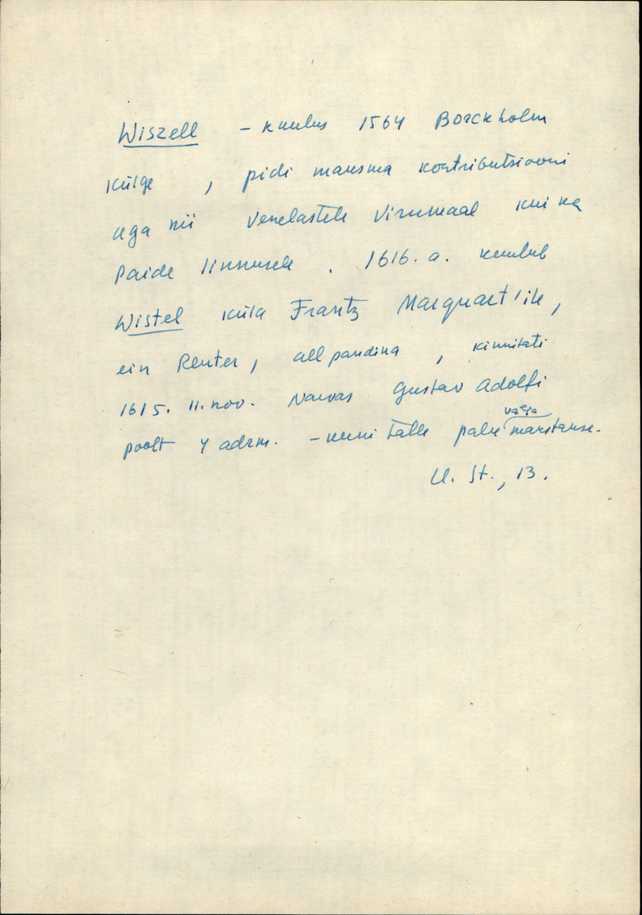 Wiszell - kuulus 1564 Borckholm
külge, pidi maksma kontributsiooni
aga nii venelastele Virumaal kui ka
Paide linnusele. 1616. a. kuulub
Wistel küla Frantz Marquart'ile,
ein Reuter, allpandina, kinnitati
1615. 11. nov. Narvas Gustav Adolfi
poolt 4 adrm. - kuni talle palk välja makstakse.
U. St., 13.